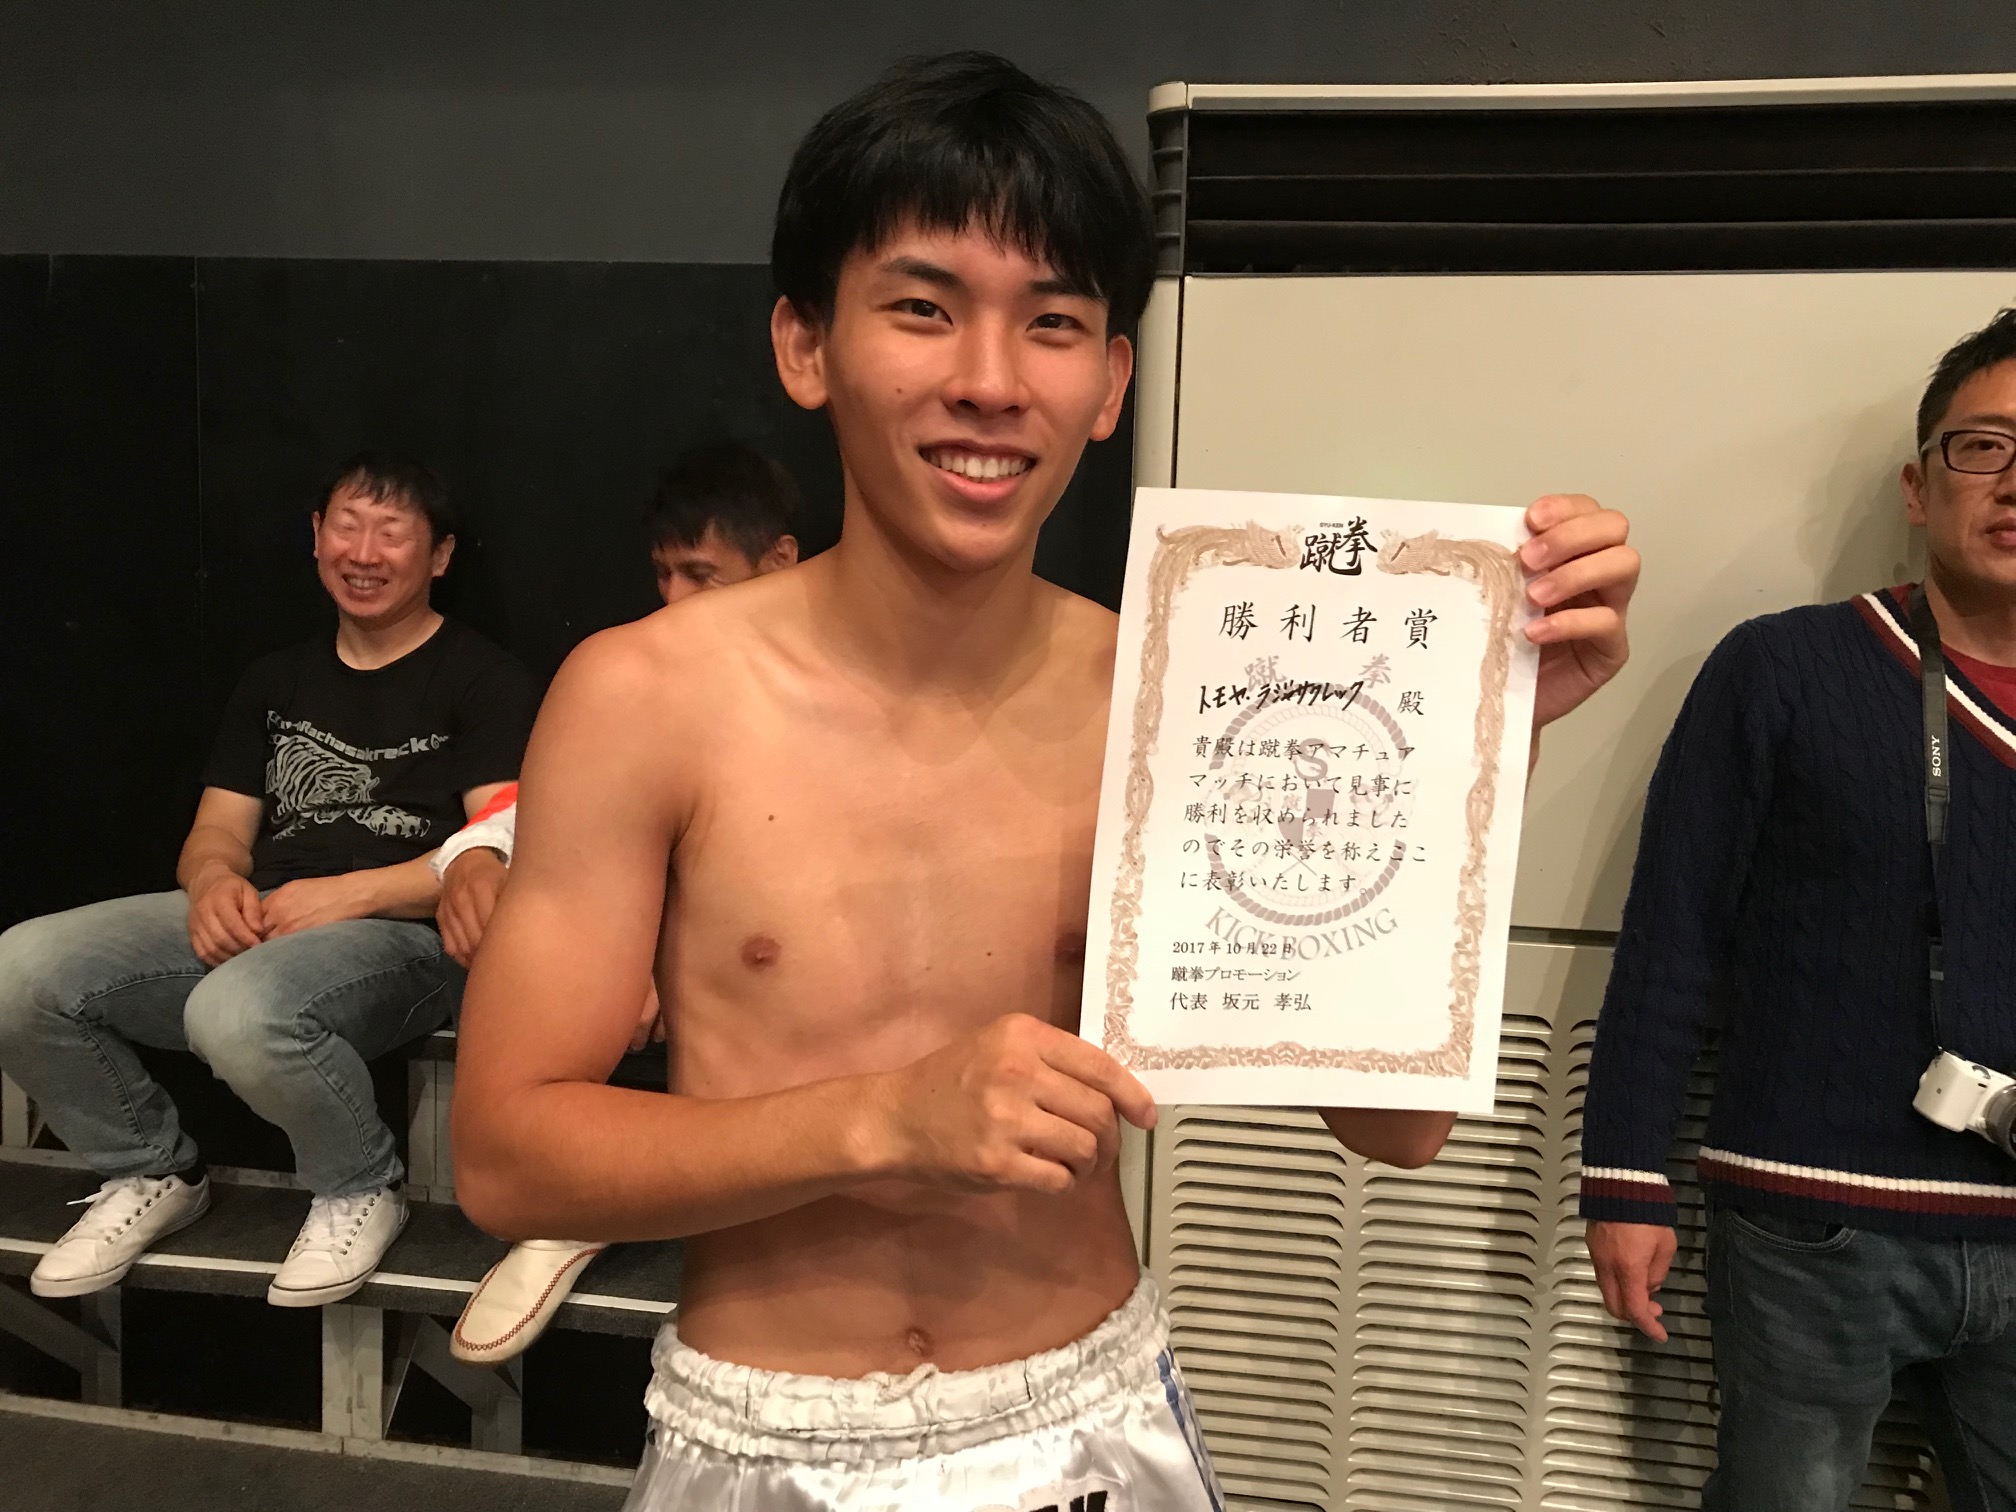 SYU-KEN
蹴拳
勝利者賞
蹴拳
トモヤ・ラジャサクレック 殿
貴殿は蹴拳アマチュア
マッチにおいて見事に
勝利を収められました
のでその栄誉を称えここ
に表彰いたします。
KICK BOXING
2017年10月22日
蹴拳プロモーション
代表 坂元 孝弘
Rachasakreck
SONY